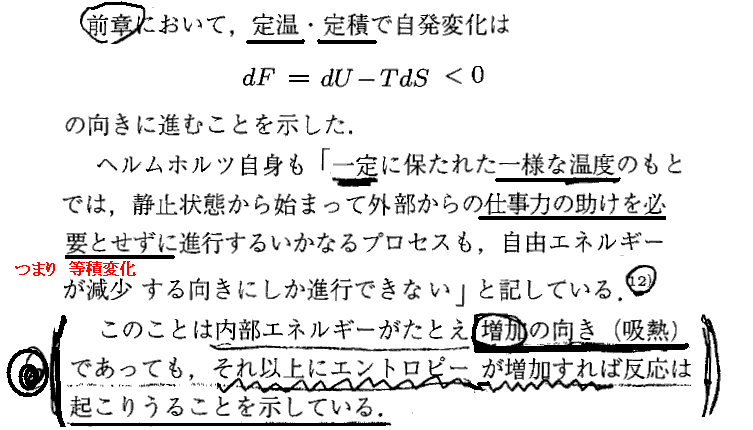 前章において，定温・定積で自発変化は
dF = dU－TdS < 0
の向きに進むことを示した．
ヘルムホルツ自身も「一定に保たれた一様な温度のもと
では，静止状態から始まって外部からの仕事力の助けを必
要とせずに進行するいかなるプロセスも，自由エネルギー
つまり 等積変化
が減少 する向きにしか進行できない」と記している．12)
このことは内部エネルギーがたとえ 増加の向き（吸熱）
であっても，それ以上にエントロピー が増加すれば反応は
起こりうることを示している．